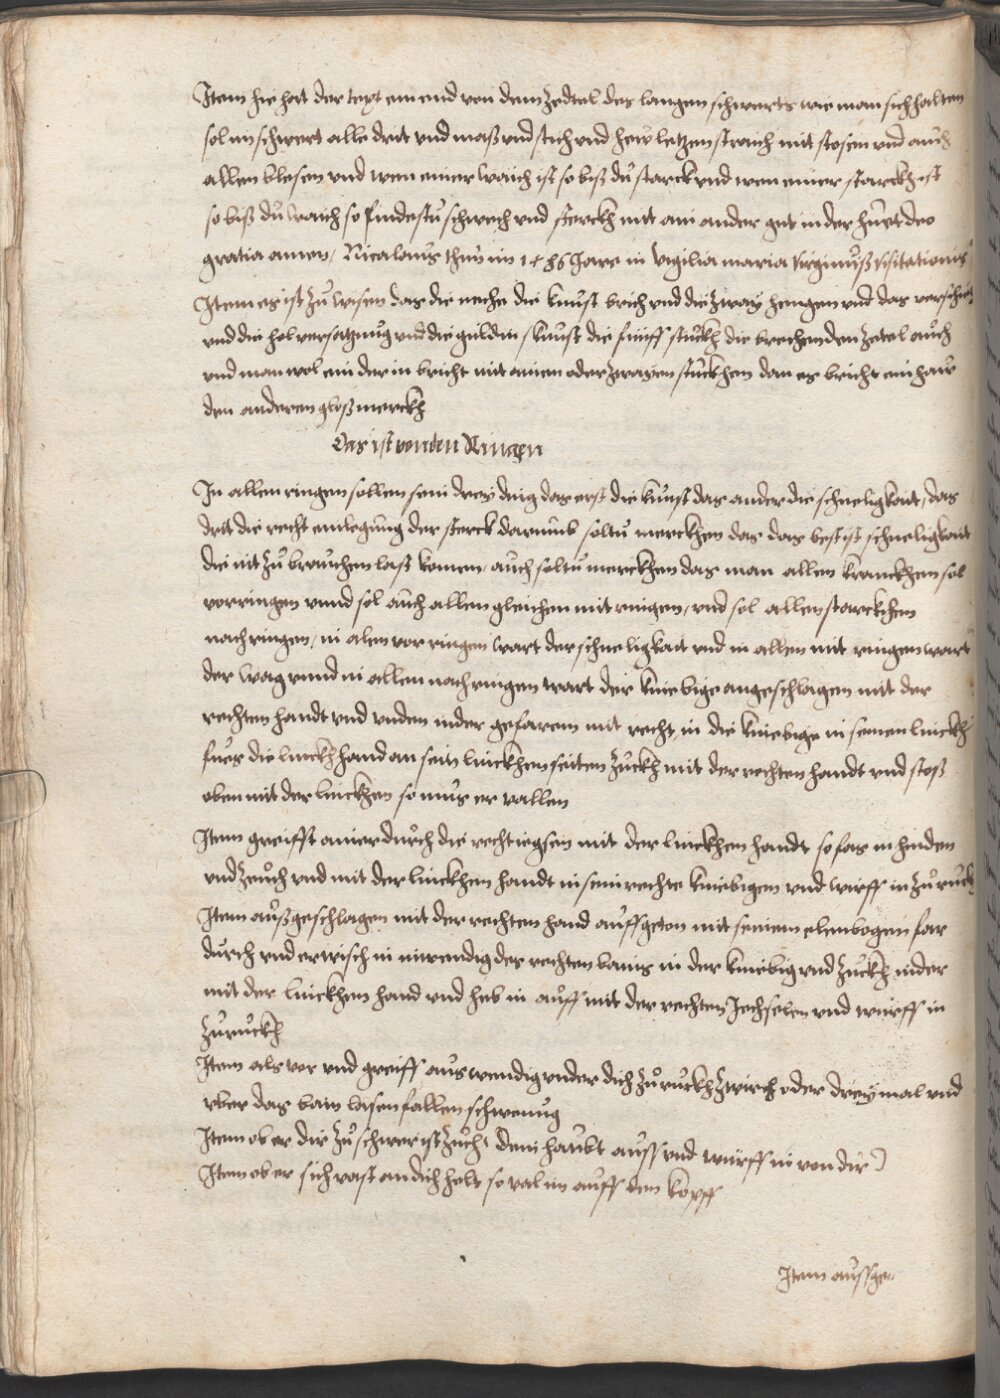 Item hie hat der text ein end von dem Zedtel des langen schwerts wie man sich halten
sol im schwert alle drit vnd maß vnd stich vnd hew letzen straich mit stosen vnd auch
allen blosen vnd wen einer waich ist so biß dŭ starck vnd wen einer starckh ist
so biß dŭ waich so findestŭ schwech vnd sterckh mit ain ander gut in der hŭet deo
gratia amen / Nicolaŭs thŭm im 1486 Jare in vigilia maria virginŭß visitationis
Item es ist zŭ wisen das die neche die kunst brich vnd die zway hengen vnd das verschieb
vnd die hol versatzŭng vnd die gŭldin kunst die fünff stŭckh die brechen den Zetel auch
vnd man wol ein der in bricht mit ainem oder zwayen stŭckhen dan es bricht ein haw
den anderen gloß merckh
Das ist von den Ringen
In allen ringen sollen sein drey ding das erst die kŭnst das ander die schneligkait / das
drit die recht einlegŭng der sterck darŭmb soltŭ merckhen das das best ist schneligkait
die nit zŭ brauchen laß komen / auch soltŭ merckhen das man allen kranckhen sol
vorringen vnnd sol auch allen gleichen mit ringen / vnd sol allen starckhen
nachringen / in alen vor ringen wart der schneligkait vnd in allen mit ringen wart
der wag vnnd in allen nachringen wart der kniebige angeschlagen mit der
rechten handt vnd vnden nider gefaren mit recht in die kniebige in seinen linckh
fŭes die linckh hand an sein linckhen seiten zŭckh mit der rechten handt vnd stoß
oben mit der linckhen so mŭs er vallen
Item greifft ainer dŭrch die recht iegsen mit der linckhen handt so fas in hinden
vnd zeŭch vnd mit der linckhen handt in sein rechte kniebigen vnd wirff in zŭ rŭckh
Item aŭßgeschlagen mit der rechten hand aŭffgeton mit seinem elenbogen far
dŭrch vnd erwisch in inwendig des rechten bains in der kniebig vnd zŭckh nider
mit der linckhen hand vnd heb in aŭff mit der rechten Jechselen vnd wŭrff in
zŭrŭckh
Item als vor vnd greiff aŭswendig vnder dich zŭ rŭckh zwirch oder dreymal vnd
vber das bain lasen fallen schwenŭg
Item ob er dir zŭ schwer ist zŭch dein haŭbt aŭss vnd wŭrff in von dir
Item ob er sich vast an dich helt so val im aŭff den kopff
Item aŭssge-